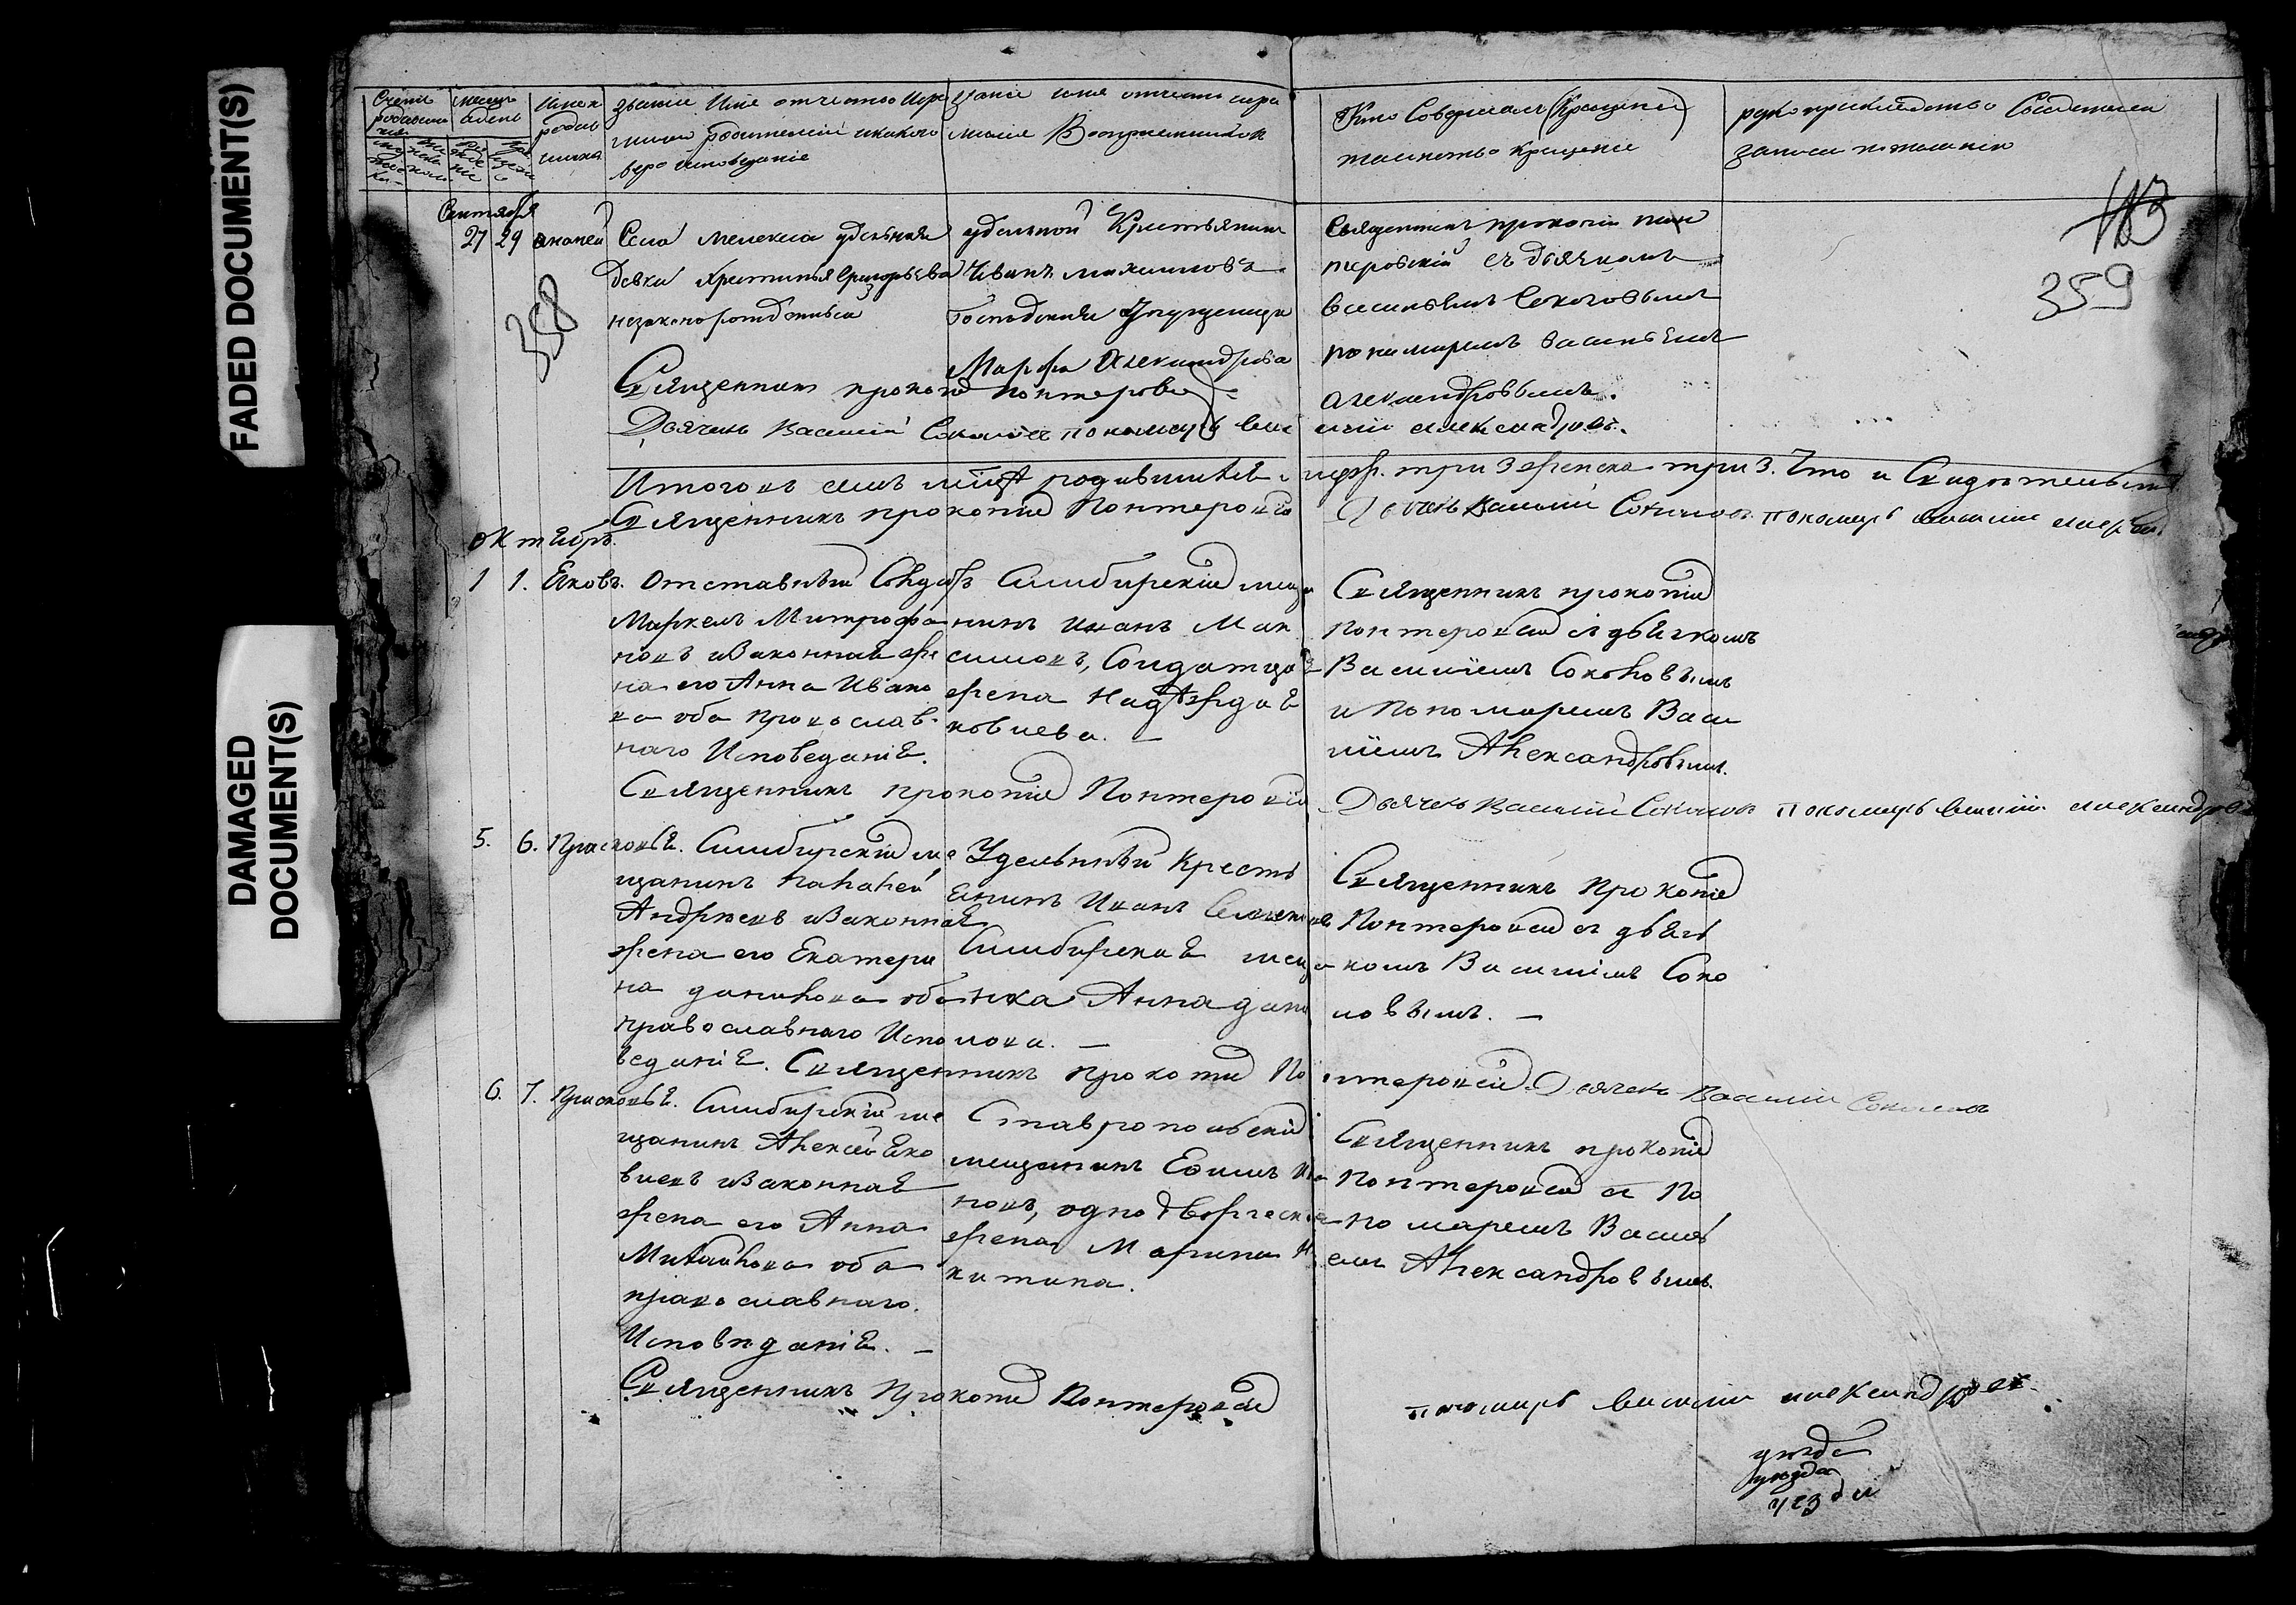 FADED DOCUMENT(S)
DAMAGED
DOCUMENT(S)
звание Имя отчество
вероисповедание
звание имя отчество
милие Восприемников
Кто Совершалъ (Крещение)
таинство крещение
рукоприкладство Свидетелей
записи по желанию
113
359
358
Сентября
27 29 Села Мелекеса удельная
девки Христинья Григорьева
незаконорожденныя
удельной Крестьянинъ
Иванъ
Господская
Марфа Александрова
Священникъ прокопий пон
теровский съ дьячкомъ
васильемъ Соколовымъ
пономаремъ васильемъ
александровымъ.
Священникъ прокопий Понтеровский
Дьячекъ Василий Соколовъ пономарь василий александровъ.
Итого въ семъ родившихся три 3 женска три 3. Что и Свидетельствуемъ
Священникъ прокопий Понтеровский Дьячекъ Василий Соколовъ пономарь
октябрь.
1 1. Яковъ. Отставный Солдатъ
Маркелъ Митрофа
новъ и Законная же
на его Анна Ивано
ва оба православ
наго Исповеданiя.
Симбирскiй меща
нинъ Иванъ Мак
симовъ, Солдатцка
жена Надежда Я
ковлева. —
Священникъ прокопiй
Понтеровскiй съ дьячкомъ
Василiемъ Соколовымъ
и Пономаремъ Васи
лiемъ Александровымъ.
Священникъ прокопiй Понтеровскiй Дьячекъ Василий Соколовъ пономарь василий александровъ
5. 6. Прасковья. Симбирскiй ме
щанинъ
Андреевъ и Законная
жена его Екатери
на данилова оба
православнаго Испо
веданiя.
Удельный Кресть
янинъ Иванъ
Симбирская меща
нка Анна дани
лова. —
Священникъ Прокопiй
Понтеровскiй съ дьяч
комъ Василiемъ Соко
ловымъ. —
Священникъ Прокопiй Понтеровскiй Дьячекъ Василий Соколовъ
6. 7. Прасковья. Симбирскiй ме
щанинъ Алексей Яко
влевъ и Законная
жена его Анна
Михайлова оба
православнаго.
Исповеданiя. —
Ставропольскiй
мещанинъ Ефимъ Ива
новъ, однодворческая
жена Марина Ни
китина.
Священникъ прокопiй
Понтеровскiй съ По
номаремъ Василь
емъ Александровымъ.
Священникъ Прокопiй Понтеровскiй пономарь василий александровъ.
уезда
уезда
уезды